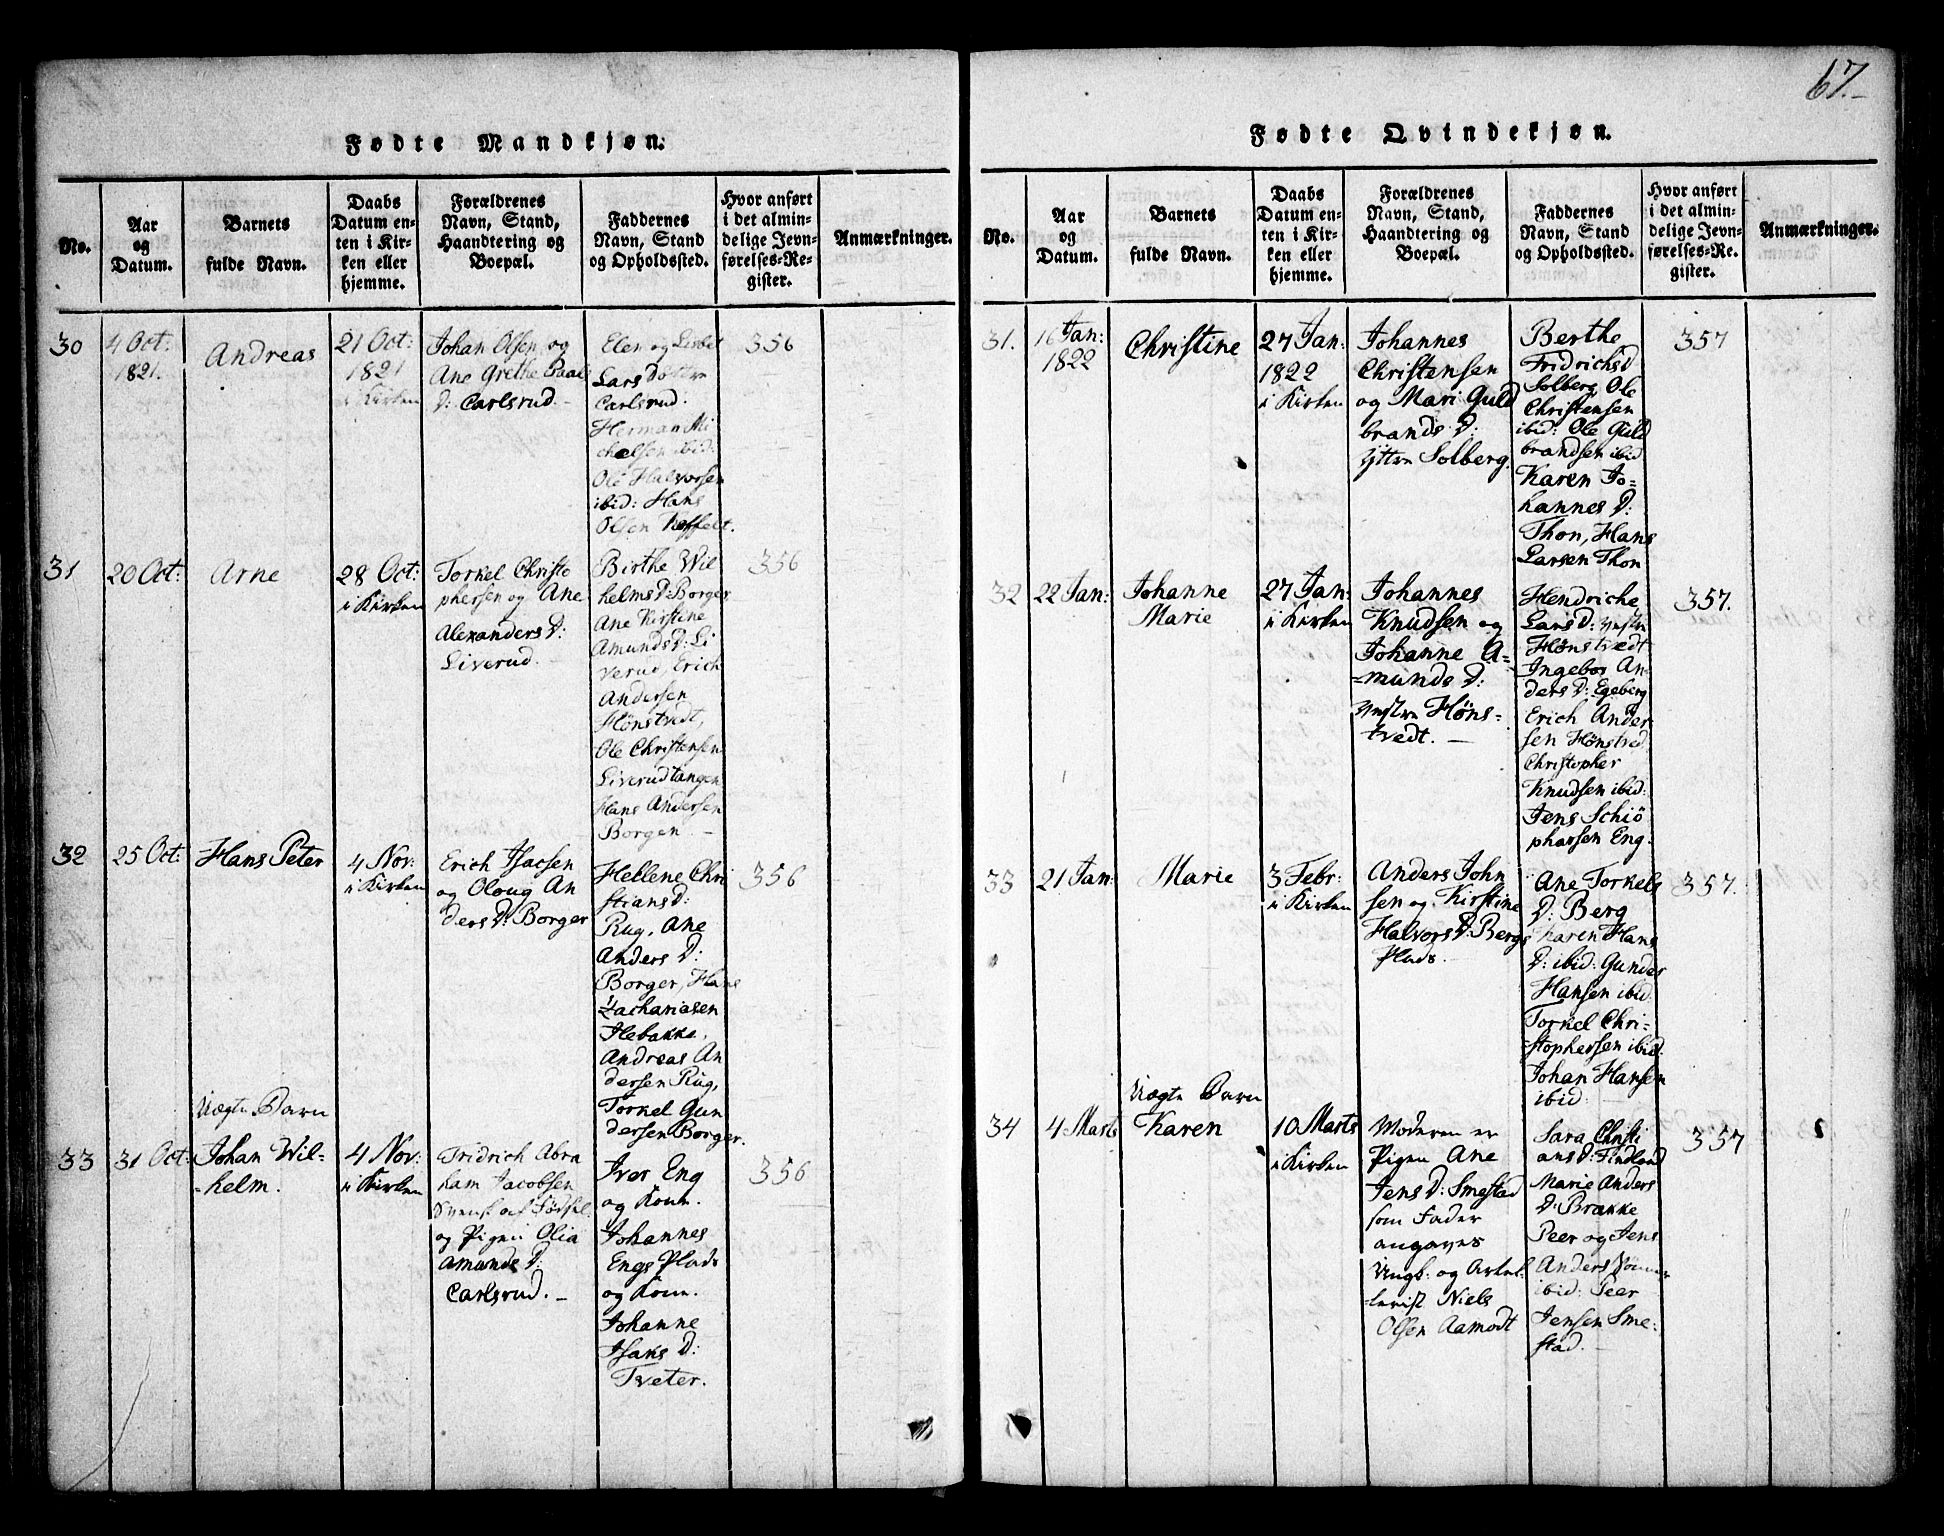 67.
Fødte Mandkjøn.
No.
Aar
og
Datum.
Barnets
fulde Navn.
Daabs
Datum en-
ten i Kir-
ken eller
hjemme.
Forældrenes
Navn, Stand,
Haandtering og
Boepæl.
Faddernes
Navn, Stand
og Opholdssted.
Hvor anført
i det almin-
delige Jevn-
førelses-Re-
gister.
Anmærkninger.
30
4 Oct:
1821.
Andreas
21 Oct:
1821
i Kirken
Johan Olsen og
Ane Grethe Paals
D: Carlsrud.
Elen og Lisbet
Lars Døttre
Carlsrud.
Herman Mi
chelsen ibid:
Ole Halvorsen
ibid: Hans
Olsen
356
31
20 Oct:
Arne
28 Oct:
i Kirken
Torkel Christo
phersen og Ane
Alexanders D:
Liverud.
Birthe Wil
helms D: Borger
Ane Kirstine
Amunds D: Li
verud, Erich
Andersen
Hönstvedt,
Ole Christensen
Liverudtangen
Hans Andersen
Borgen
356
32
25 Oct:
Hans Peter
4 Nov:
i Kirken
Erich Isacsen
og Oloug An
ders D: Borger
Hellene Chri
stians D:
Rug, Ane
Anders D:
Borger, Hans
Zachariasen
Ilebakke,
Andreas An
dersen Rug,
Torkel Gun
dersen Borger.
356
33
31 Oct:
Uægte Barn
Johan Wil-
helm.
4 Nov:
i Kirken
Fridrich Abra
ham Jacobsen
Svensk af Födsel
og Pigen Olia
Amunds D:
Carlsrud.
Iver Eng
og Kone.
Johannes
Engs Plads
og Kone.
Johanne
Isaks D:
Tveter.
356
Fødte Qvindekjøn.
No.
Aar
og
Datum.
Barnets
fulde Navn.
Daabs
Datum en-
ten i Kir-
ken eller
hjemme.
Forældrenes
Navn, Stand,
Haandtering og
Boepæl.
Faddernes
Navn, Stand
og Opholdssted.
Hvor anført
i det almin-
delige Jevn-
førelses-Re-
gister.
Anmærkninger.
31.
16 Jan:
1822
Christine
27 Jan:
1822
i Kirken
Johannes
Christensen
og Mari Guld
brands D:
Yttre Solberg.
Berthe
Fridrichs D
Solberg Ole
Christensen
ibid: Ole Guld
brandsen ibid
Karen Jo-
hannes D:
Thon, Hans
Larsen Thon
357
32
22 Jan:
Johanne
Marie
27 Jan:
i Kirken
Johannes
Knudsen og
Johanne A-
munds D:
Vestre Höns-
tvedt.
Hendriche
Lars D: Vestre
Hönstvedt
Ingebor An-
ders D: Egeberg
Erich Ander
sen Hönstved
Christopher
Knudsen ibid:
Jens Schiö
phersen Eng.
357.
33
21 Jan:
Marie
3 Febr:
i Kirken
Anders John
sen og Kirstine
Halvors D: Bergs
Plads.
Ane Torkels
D: Berg
Karen Hans
D: ibid: Gunder
Hansen ibid.
Torkel Chri-
stophersen ibid.
Johan Hansen
ibid.
357.
34
4 Marts
Uægte Barn
Karen
10 Marts
i Kirken
Moderen er
Pigen Ane
Jens D: Smestad
som Fader
angaves
Ungk: og Artel-
lerist Niels
Olsen Aamodt
Sara Christi
ans D: Findland
Marie Anders
D: Brække
Peer og Jens
Anders Sönner
ibid: Peer
Jensen Sme-
stad.
357